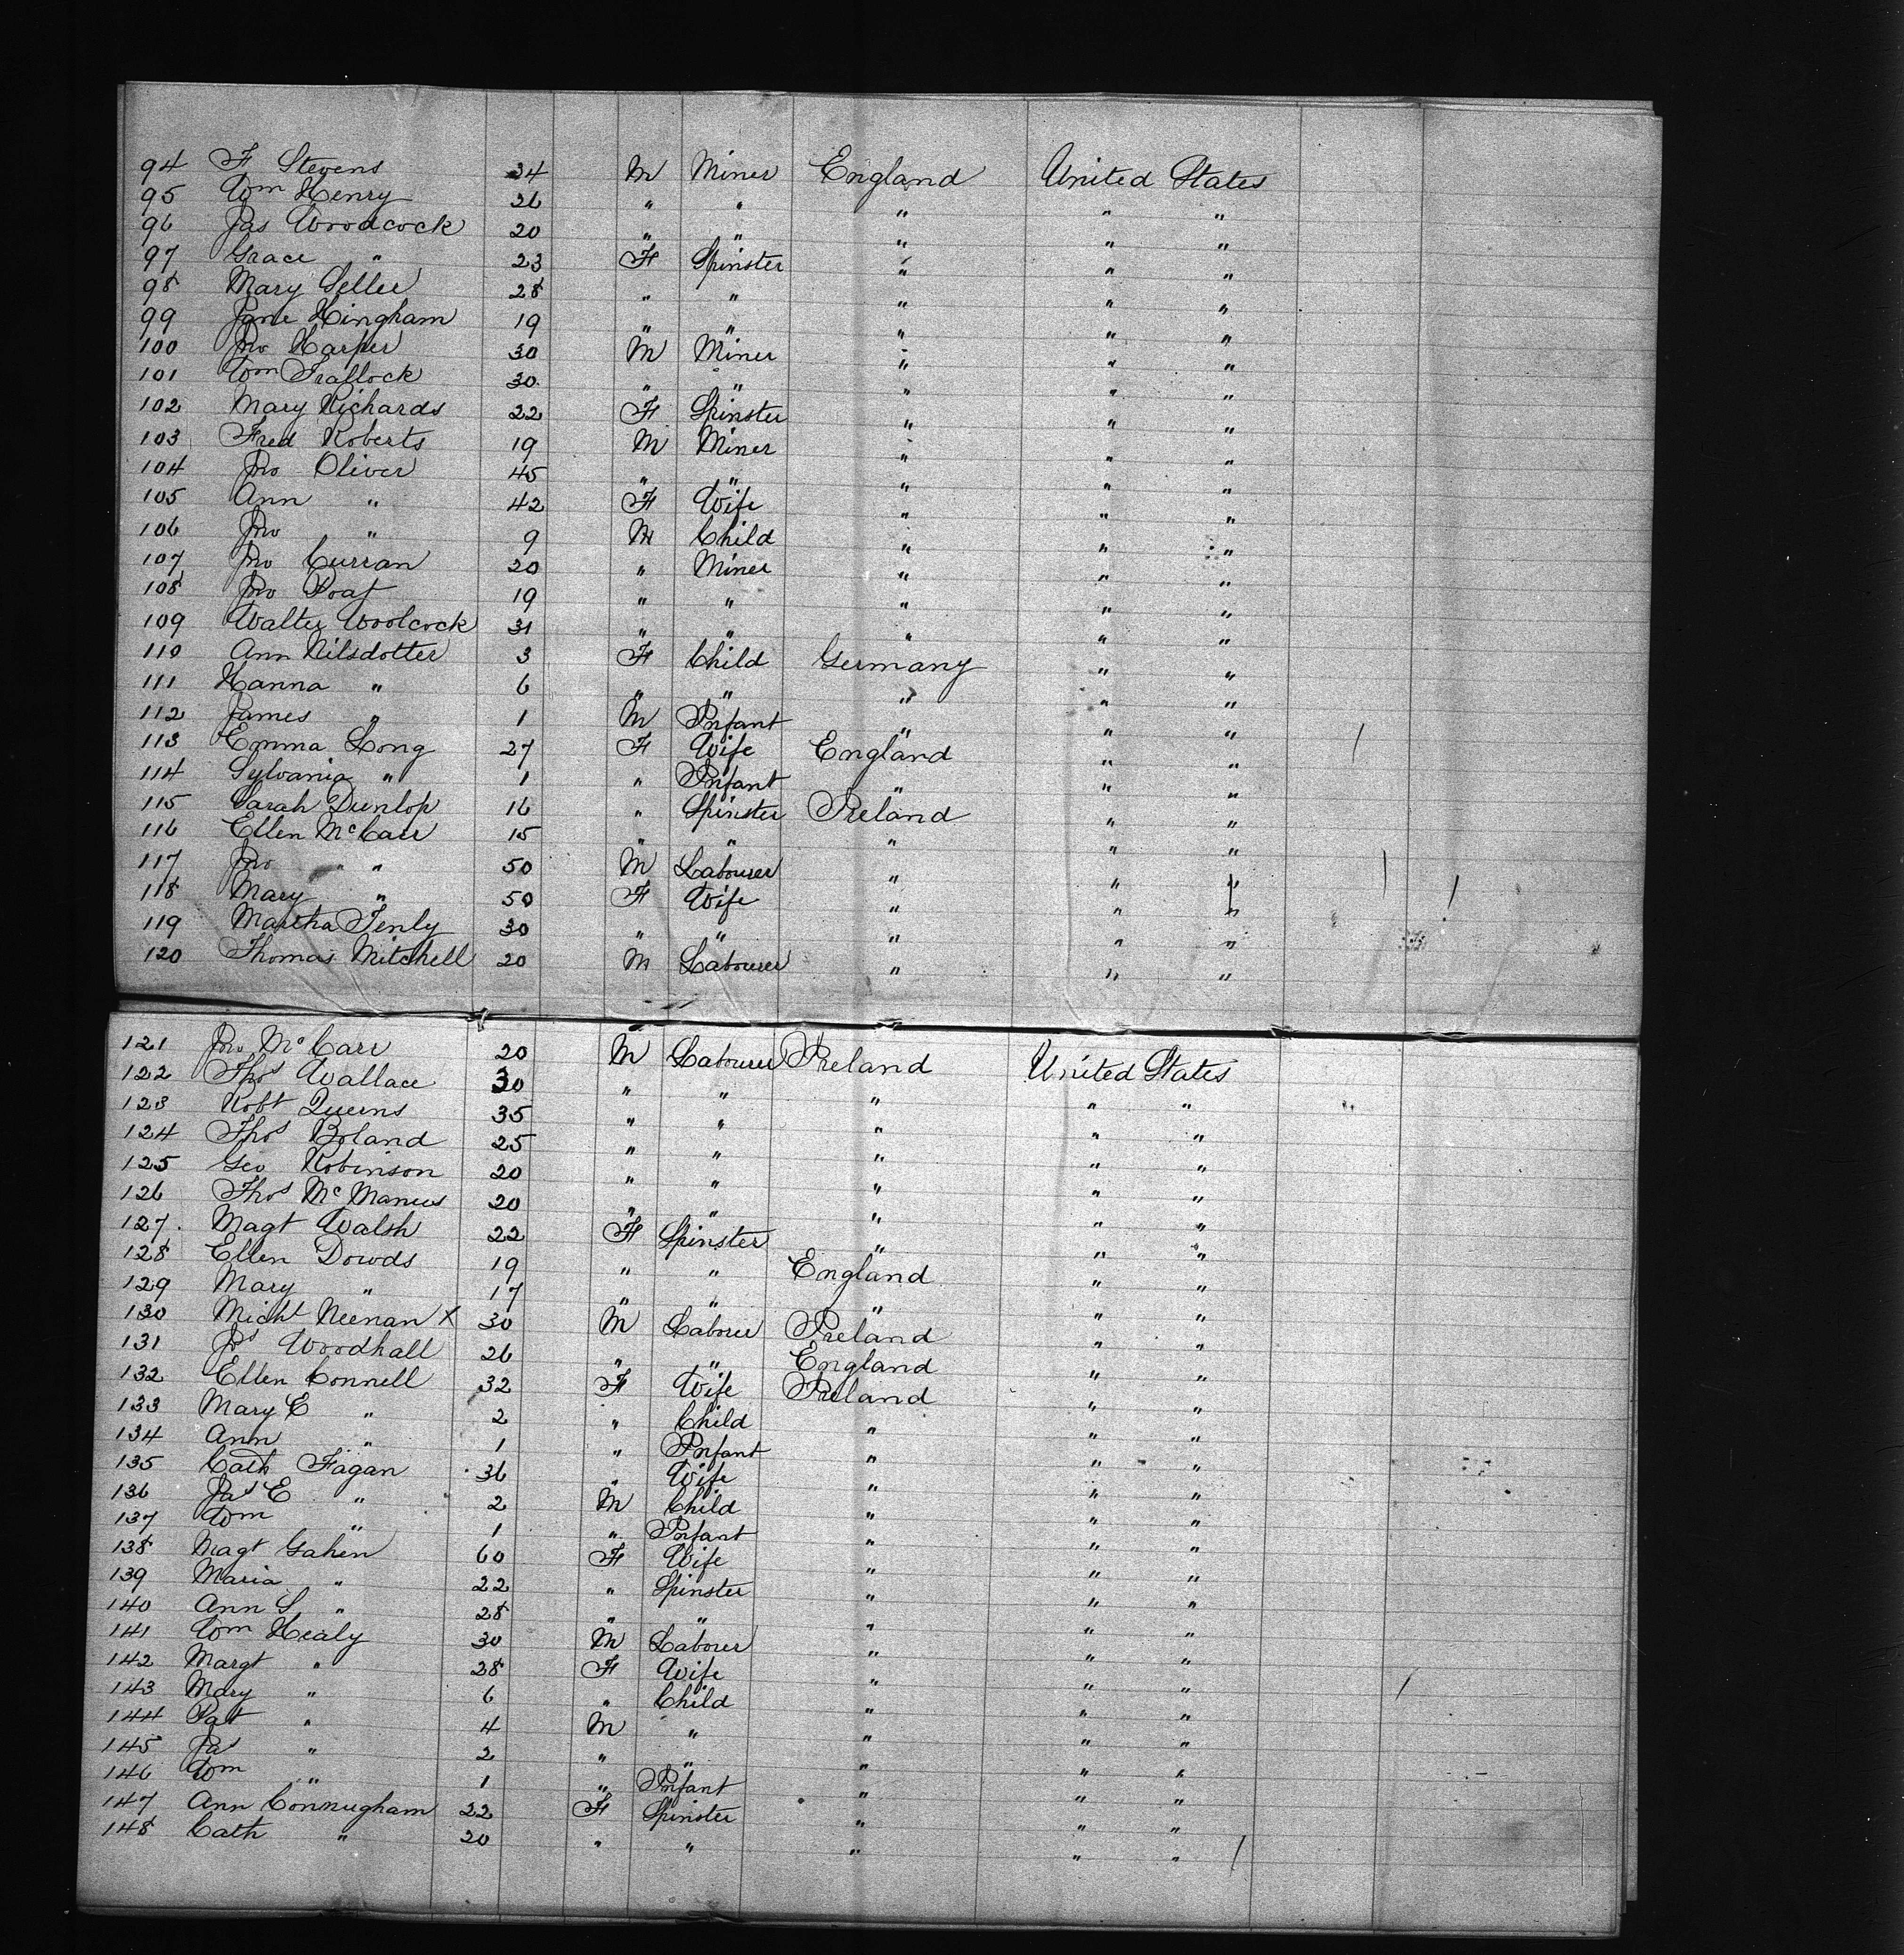 94 F Stevens 34 M Miner England United States
95 Wm Henry 26 " " " " "
96 Jas Woodcock 20 " " " " "
97 Grace " 23 F Spinster " " "
98 Mary 28 " " " " "
99 Jane Hingham 19 " " " " "
100 Jno Harper 30 M Miner " " "
101 Wm 30 " " " " "
102 Mary Richards 22 F Spinster " " "
103 Fred Roberts 19 M Miner " " "
104 Jno Oliver 45 " " " " "
105 Ann " 42 F Wife " " "
106 Jno " 9 M Child " " "
107 Jno Curran 20 " Miner " " "
108 Jno 19 " " " " "
109 Walter Woolcock 31 " " " " "
110 Ann Nilsdotter 3 F Child Germany " "
111 Hanna " 6 " " " " "
112 James " 1 M Infant " " "
113 Emma Long 27 F Wife England " "
114 Sylvania " 1 " Infant " " "
115 Sarah Dunlop 16 " Spinster Ireland " "
116 Ellen McCarr 15 " " " " "
117 Jno " " 50 M Labourer " " "
118 Mary " 50 F Wife " " "
119 Martha Fenly 30 " " " " "
120 Thomas Mitchell 20 M Labourer " " "
121 Jno McCarr 20 M Labourer Ireland United States
122 Thos Wallace 30 " " " " "
123 Robt Queens 35 " " " " "
124 Thos Boland 25 " " " " "
125 Geo Robinson 20 " " " " "
126 Thos McManus 20 " " " " "
127 Magt Walsh 22 F Spinster " " "
128 Ellen Dowds 19 " " England " "
129 Mary " 17 " " " " "
130 Michl Neenan X 30 M Laborer Ireland " "
131 Js Woodhall 26 " " England " "
132 Ellen Connell 32 F Wife Ireland " "
133 Mary E " 2 " Child " " "
134 Ann " 1 " Infant " " "
135 Cath Fagan 36 " Wife " " "
136 Jas E " 2 M Child " " "
137 Wm " 1 " Infant " " "
138 Magt Gahen 60 F Wife " " "
139 Maria " 22 " Spinster " " "
140 Ann S " 28 " " " " "
141 Wm Healy 30 M Laborer " " "
142 Margt " 28 F Wife " " "
143 Mary " 6 " Child " " "
144 Pat " 4 M " " " "
145 Jas " 2 " " " " "
146 Wm " 1 " Infant " " "
147 Ann Connugham 22 F Spinster " " "
148 Cath " 20 " " " " "